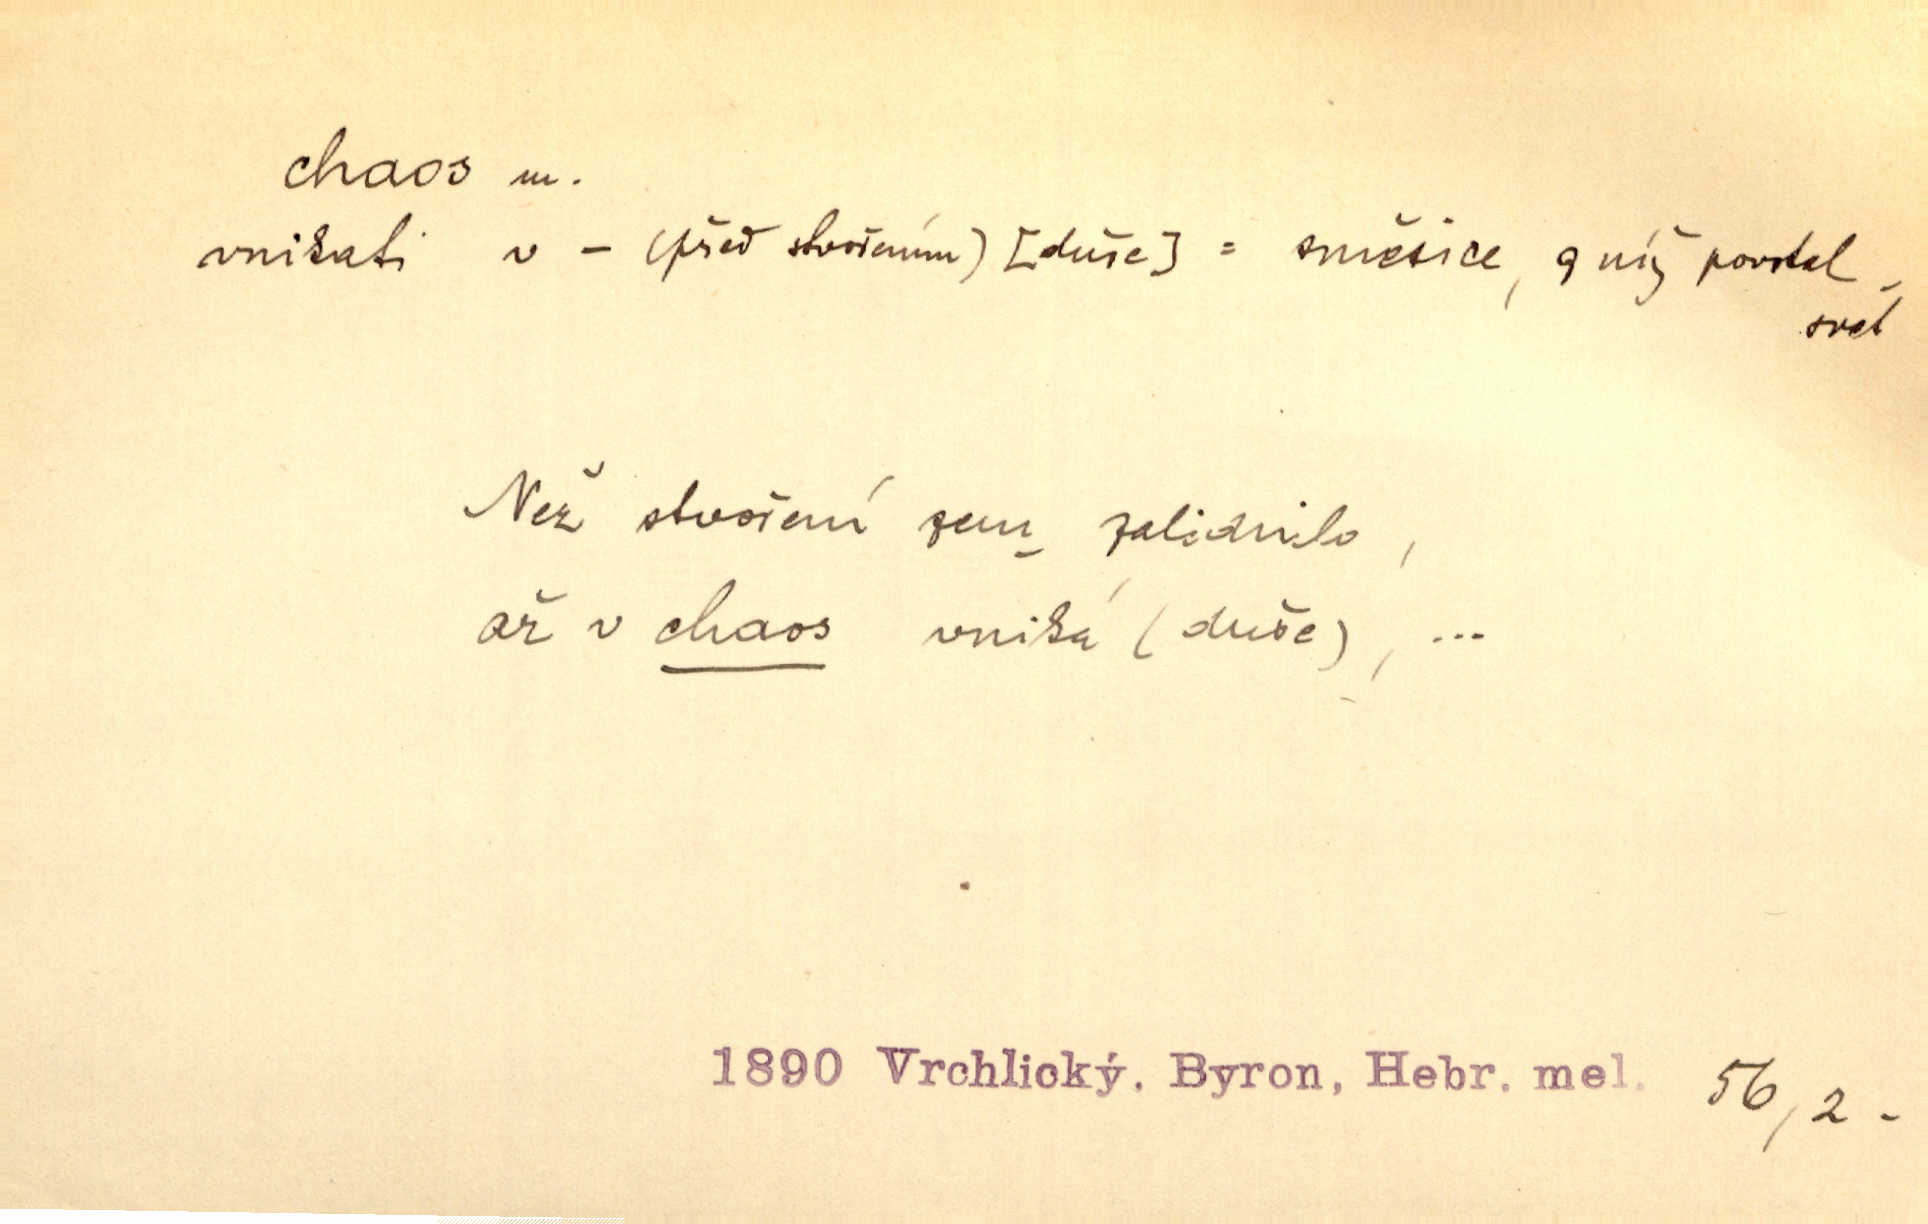 chaos m.
vnikati v – (před stvořením) [duše] = směsice, z níž povstal
svět
Než stvoření zem zalidnilo,
až v chaos vniká (duše), ...
1890 Vrchlický. Byron, Hebr. mel. 56, 2 -